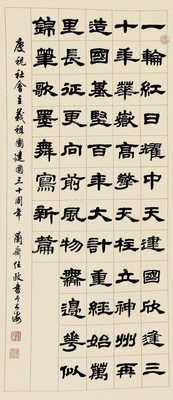 一輪紅日耀中天建國欣逢三
十年華嶽高擎天柱立神州再
造國基堅百年大計重經始萬
里長征更向前風物無邊花似
錦筆歌墨舞寫新篇
慶祝社會主義祖國建國三十周年 蘭齋任政書于上海